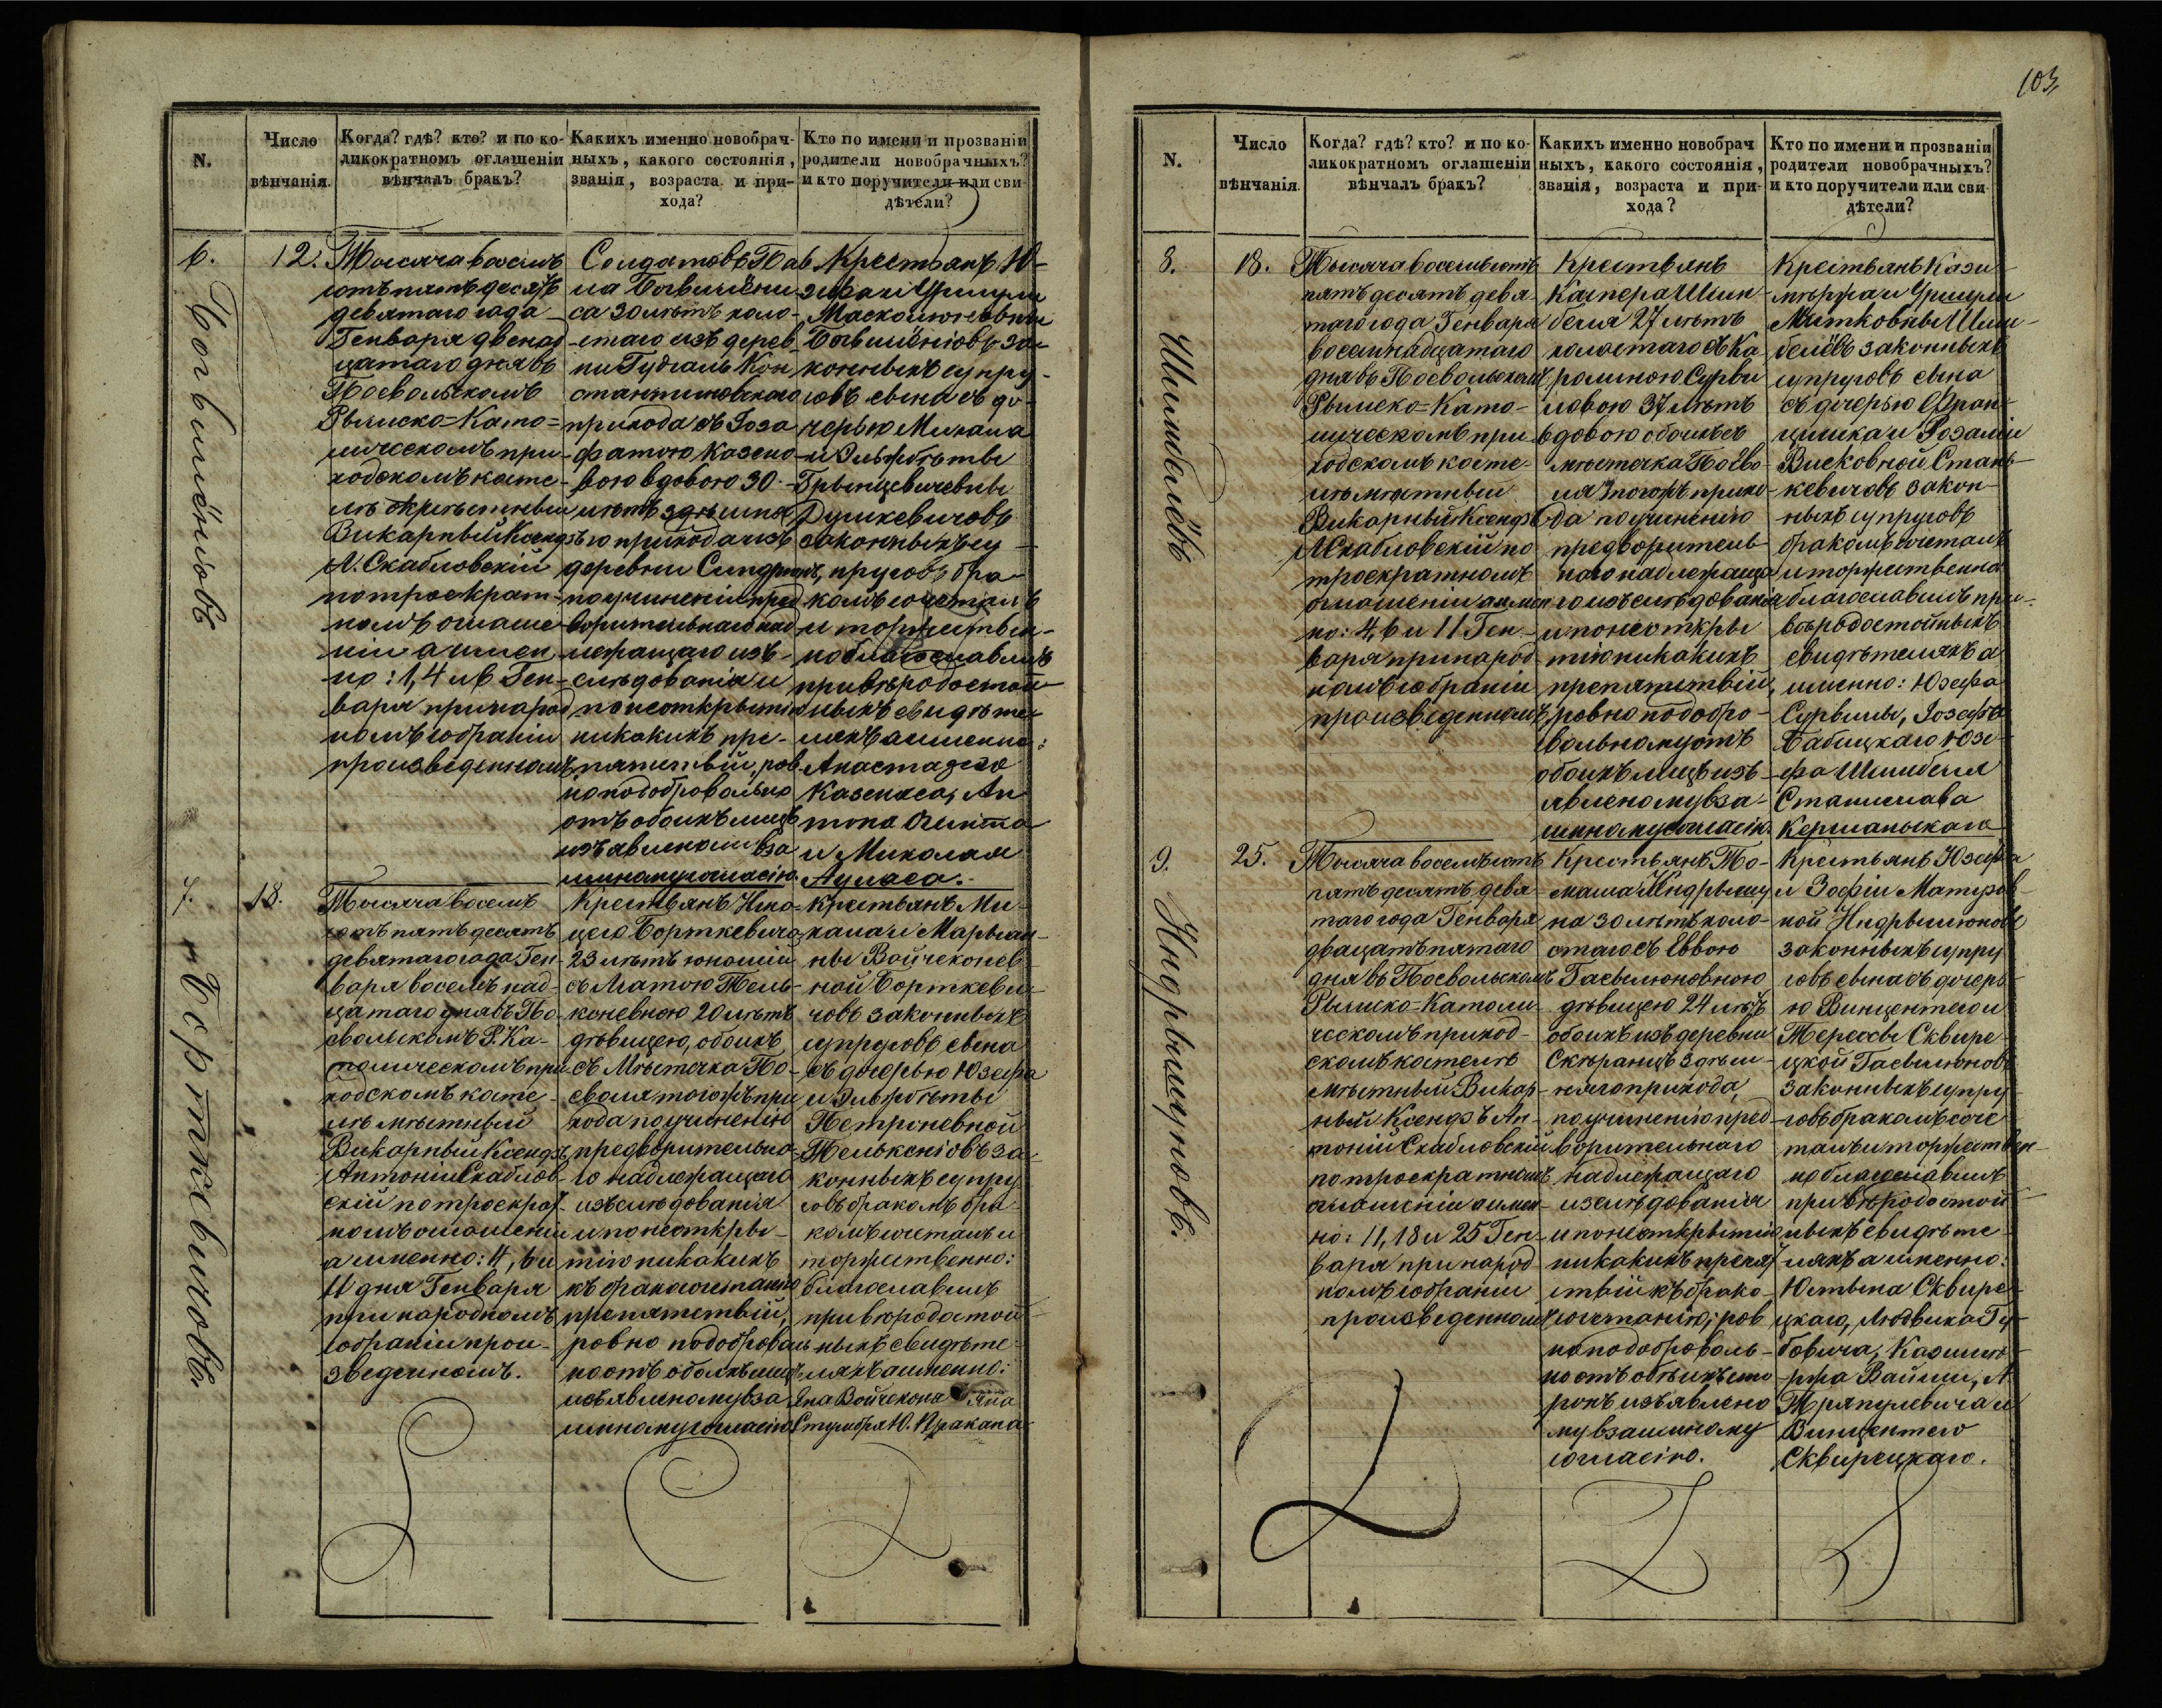 N.
Число
вѣнчанія.
Когда? гдѣ? кто? и по ко-
ликократномъ оглашеніи
вѣнчалъ бракъ?
Какихъ именно новобрач-
ныхъ, какого состоянія,
званія, возраста и при-
хода?
Кто по имени и прозванію
родители новобрачныхъ?
и кто поручители или сви-
дѣтели?
6.
12.
Тысяча восемь
сотъ пятъдесятъ
девятаго года
Генваря двенад
цатаго дня въ
Посвольскомъ
Рымско=Като=
лическомъ при-
ходскомъ косте-
лѣ
Викарный Ксендзъ
А. Скабловскій
по троекрат-
номъ оглаше
ніи а имен
но: 1, 4 и 6 Ген-
варя при народ
номъ собраніи
произведенномъ
Солдатовъ
са 30 лѣтъ холо-
стаго изъ дерев
ни Гудгаль Кон
стантиновскаго
прихода съ Іоза
фатою Казено
вою вдовою 30
лѣтъ здѣшня
го прихода изъ
деревни
по учиненіи пред
ворительнаго над
лежащаго изъ-
слѣдованія и
по неоткрытію
никакихъ пре-
пятствій, ров
но подобровольно
отъ обоихъ лицъ
изъявленному вза
имному согласію
Крестьянъ Ю-
зефа и Уршули
конныхъ супру-
говъ сына съ до-
черью Михала
и Эльжбеты
законныхъ су
пруговъ бра-
комъ сочеталъ
и торжествен-
но благославилъ
при вѣродостой
ныхъ свидѣте
ляхъ а именно:
Анастазего
Казенаса, Ан
тона
и Миколая
7.
18.
Борткевичовъ
Тысяча восемь
сотъ пятъдесятъ
девятаго года Ген-
варя восемънад-
цатаго дня въ По-
свольскомъ Р. Ка-
толическомъ при
ходскомъ косте-
лѣ мѣстный
Викарный Ксендзъ
Антоній Скаблов-
скій по троекрат-
номъ оглашеніи
а именно: 4, 6 и
11 дня Генваря
при народномъ
собраніи прои-
зведенномъ.
Крестьянъ Игна-
цего Борткевича
23 лѣтъ юношій
съ Агатою Тель-
коневною 20 лѣтъ
дѣвицею, обоихъ
съ Мѣстечка По-
сволятогожъ при
хода по учиненію
предворительна-
го надлежащаго
изъслѣдованія
и по неоткры-
тію никакихъ
къ бракосочетанію
препятствій,
ровно подоброволь
но отъ обоихъ лицъ
изъявленному вза
имному согласію
Крестьянъ Ми-
хала и Марьян-
ны Войчеконев
ной Борткеви
човъ законныхъ
супруговъ сына
съ дочерью Юзефа
и Эльжбеты
Петроневной
Тельконіовъ за-
конныхъ супру
говъ бракомъ бра
комъ сочеталъ и
торжественно:
благославилъ
при вѣродостой
ныхъ свидѣте-
ляхъ а именно:
Яна Войчеконя Яна
103.
N.
Число
вѣнчанія.
Когда? гдѣ? кто? и по ко-
ликократномъ оглашеніи
вѣнчалъ бракъ?
Какихъ именно новобрач
ныхъ, какого состоянія,
званія, возраста и при-
хода?
Кто по имени и прозванію
родители новобрачныхъ?
и кто поручители или сви-
дѣтели?
8.
18.
Шимбелёвъ
Тысяча восемьсотъ
пятъдесятъ девя
таго года Генваря
восемнадцатаго
дня въ Посвольскомъ
Рымско=Като-
лическомъ при-
ходскомъ косте-
лѣ мѣстный
Викарный Ксендзъ
А Скабловскій по
троекратномъ
оглашеніи а имен
но: 4, 6 и 11 Ген-
варя при народ
номъ собраніи
произведенномъ
Крестьянъ
Каспера Шим-
беля 27 лѣтъ
холостаго съ Ка-
ролиною Сурви
ловою 37 лѣтъ
вдовою обоихъ съ
мѣстечка Посво-
ля тогожъ прихо-
да по учиненію
предворитель
наго надлежаща
го изъслѣдованія
и по неоткры
тію никакихъ
препятствій,
ровно подобро-
вольному отъ
обоихъ лицъ изъ-
явленому вза-
имному согласію.
Крестьянъ Кази
мѣржа и Уршули
Митковны Шим-
белёвъ законныхъ
супруговъ сына
съ дочерью Фран-
цишка и Розаліи
Висковной Стань-
кевичовъ закон-
ныхъ супруговъ
бракомъ сочеталъ
и торжественно
благославилъ при
вѣродостойныхъ
свидѣтеляхъ а
именно: Юзефа
Сурвилы, Іозефа
Бабицкаго Юзе-
фа Шимбеля
Станислава
9.
25.
Тысяча восемьсотъ
пятъдесятъ девя-
таго года Генваря
двацатьпятаго
дня въ Посвольскомъ
Рымско-Католи-
ческомъ приход-
скомъ костелѣ
мѣстный Викар-
ный Ксендзъ Ан-
тоній Скабловскій
по троекратномъ
оглашеніи а имен-
но: 11, 18 и 25 Ген-
варя при народ
номъ собраніи
произведенномъ
Крестьянъ То-
маша Индрышу
на 30 лѣтъ холо-
стаго съ Еввою
Гасылюновною
дѣвицею 24 лѣтъ
обоихъ изъ деревни
Скѣранцъ здѣш-
няго прихода,
по учиненію пред-
ворительнаго
надлежащаго
изслѣдованія
и по неоткрытію
никакихъ препят
ствій къ брако-
сочетанію, ров
но подоброволь-
но отъ обѣихъ сто
ронъ изъявлено
му взаимному
согласію.
Крестьянъ Юзефа
и Зофіи Матузов
ной Индрышюновъ
законныхъ супру
говъ сына съ дочерь
ю Винцентего и
Терессы Сквире-
цкой Гасылюновъ
законныхъ супру
говъ бракомъ соче
талъ и торжествен-
но благославилъ
при вѣродостой
ныхъ свидѣте-
ляхъ а именно:
Юстына Сквире-
цкаго, Людвика Гу-
бовича, Казимѣ-
ржа Вайшли, А.
Тряпулевича и
Винцентего
Сквирецкаго.
Индрышуновъ.